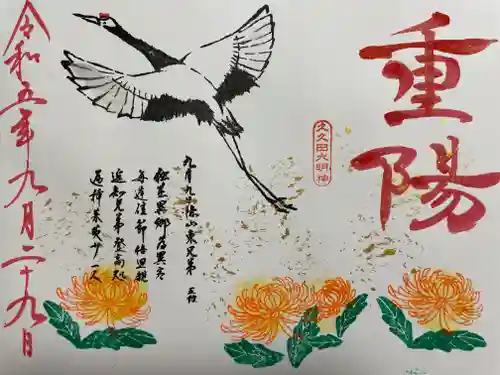 重陽
大明神
九月九日憶山東兄弟 王維
独在異郷為異客
毎逢佳節倍思親
遥知兄弟登高処
遍挿茱萸少一人
令和五年九月二十九日